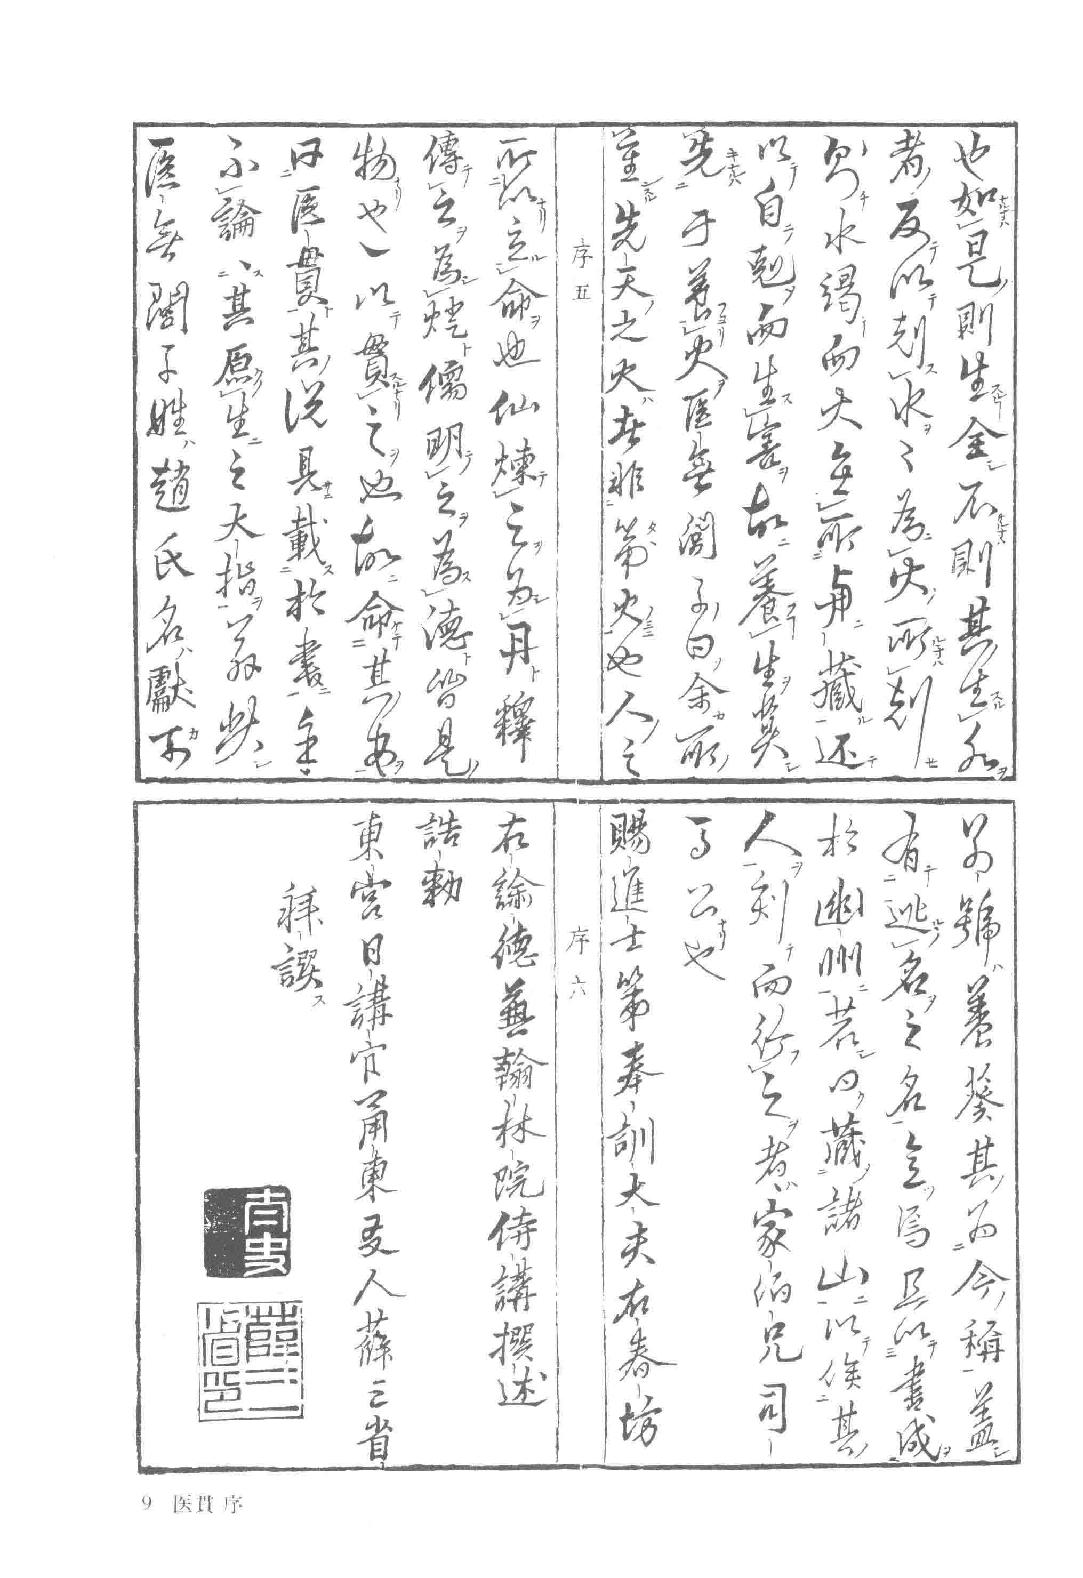 也如是則生金不則其生水
者反以剋水水為火所剋
則水竭而火無所歸藏還
以自剋而生害故養生莫
先于養火医無閭子曰余所
重先天之火者非第火也人之
序五
所以立命也仙煉之為丹釋
傳之為燈儒明之為德皆是
物也一以貫之也故命其書
曰医貫其説具載於書
不論論其原生之大指若此
医無閭子姓趙氏名獻可
別號養葵其為今稱蓋
有逃名之名意焉且以書成
於幽州若曰藏諸山以俟其
人刻而行之者家伯兄司
馬公也
賜進士第奉訓大夫右春坊
序六
右諭德兼翰林院侍講撰述
誥勅
東宮日講官甬東友人薛三省
拜譔
太史
薛三省印
9 医貫 序